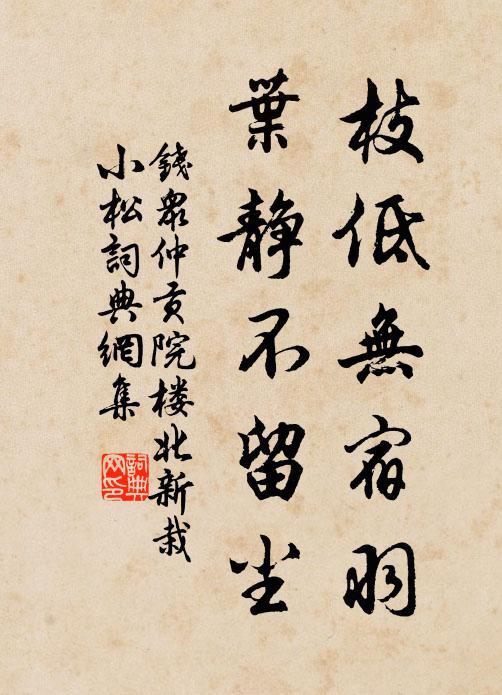 枝低無宿羽
葉靜不留尘
錢眾仲貢院楼北新栽
小松詞典網集
詞典网印